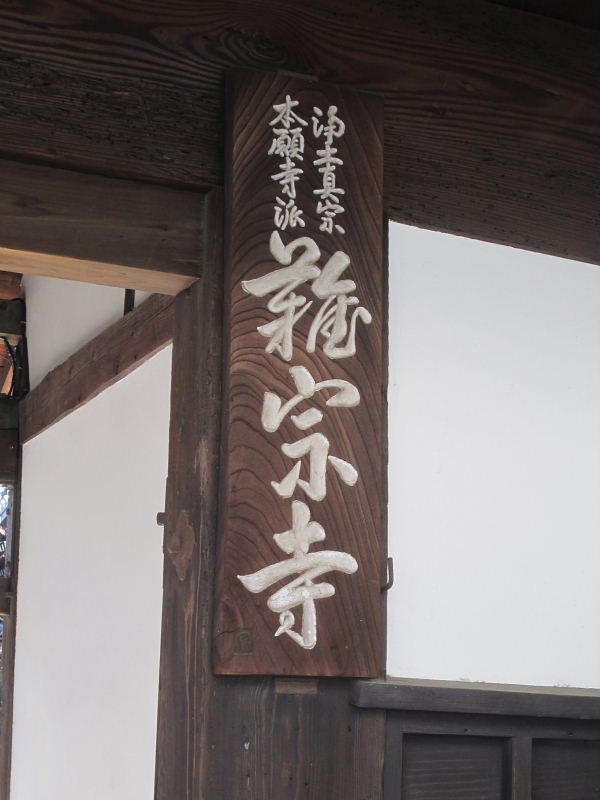 浄土真宗
本願寺派
難宗寺